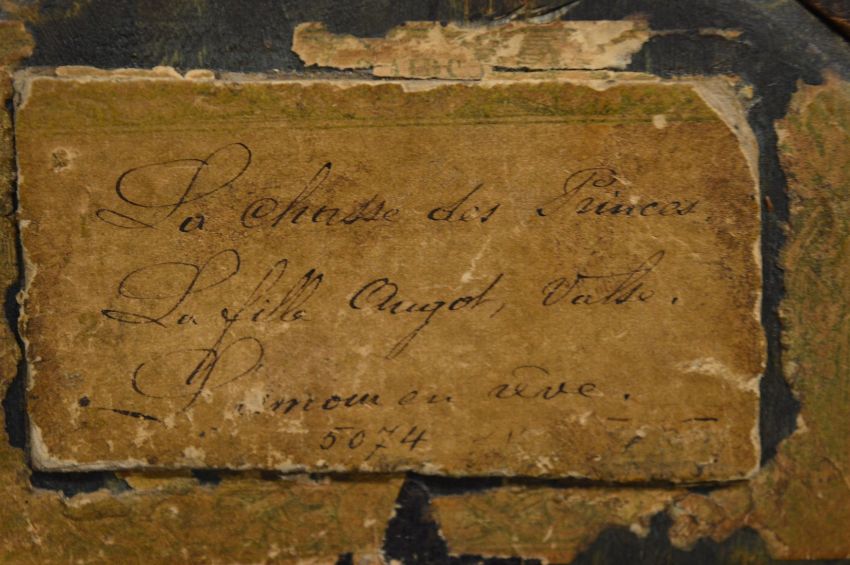 La chasse des Princes.
La fille Angot, Valse.
L'amour en rêve.
5074